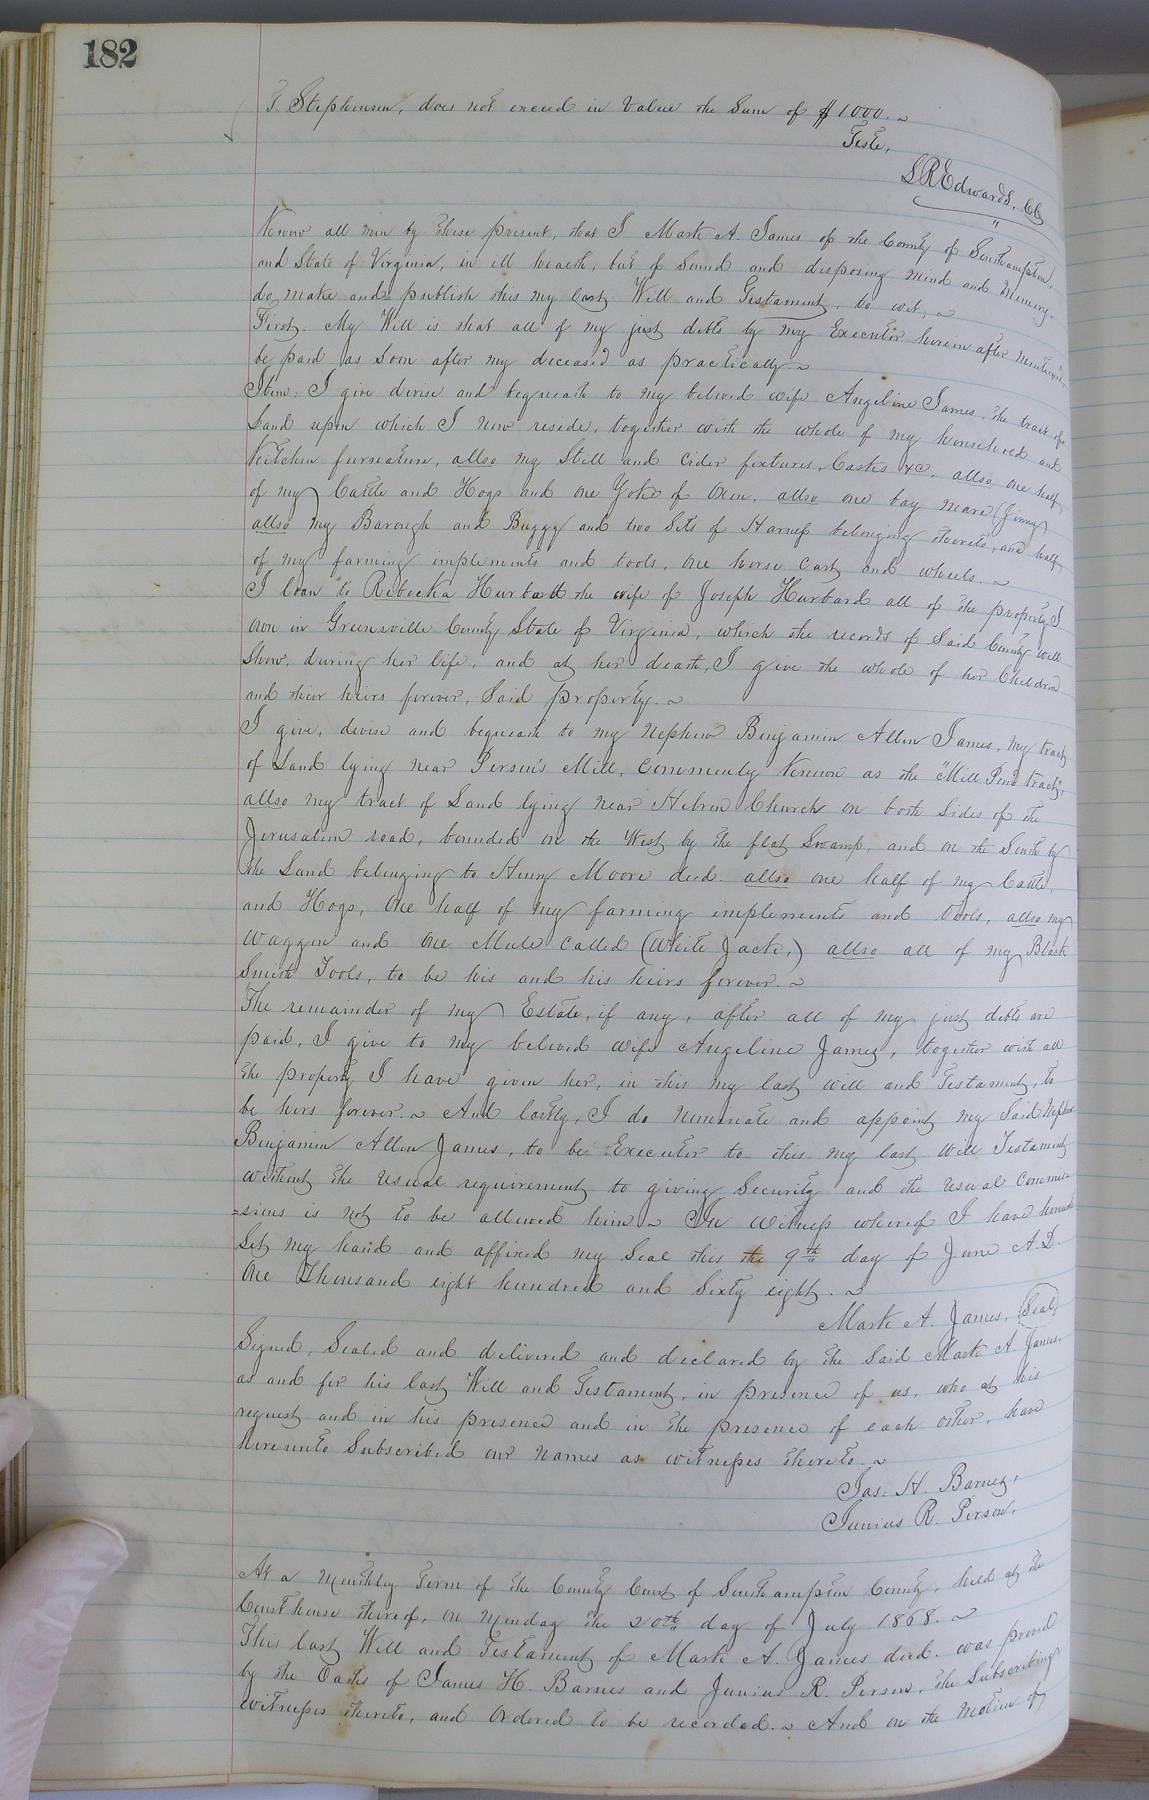 182
T. Stephenson, does not exceed in Value the Sum of $1000. ~
Teste,
L R Edwards, CC
Know all men by these present, that I Mark A. James of the County of Southampton,
and State of Virginia, in ill health, but of Sound and disposing mind and Memory,
do, make and publish this my last Will and Testament, to wit, ~
First. My Will is that all of my just debts by my Executor herein after mentioned,
be paid as Soon after my deceased as practically ~
Item: I give devise and bequeath to my beloved wife Angeline James, the tract of
Land upon which I now reside, together with the whole of my household and
Kitchen furnature, allso my Still and Cider fixtures, Casks &c, allso one half
of my Cattle and Hogs and one Yoke of Oxen, allso one bay mare (Jinny)
allso my Barough and Buggy and two Sets of Harness belonging thereto, one half
of my farming implements and tools, one horse Cart and wheels. ~
I loan to Rebecka Hurbatt the wife of Joseph Hurbard all of the property I
own in Greensville County State of Virginia, which the records of Said County will
Show, during her life, and at her death, I give the whole of her Children
and their heirs forever, Said property. ~
I give, devise and bequeath to my Nephew Benjamin Allen James, My tract
of Land lying near Person's Mill, Commonly Known as the "Mill Pond tract",
allso my tract of Land lying near Hebron Church on both Sides of the
Jerusalem road, bounded on the West by the flat Swamp, and on the South by
the Land belonging to Henry Moore decd. allso one half of my Cattle,
and Hogs, One half of my farming implements and tools, allso my
Waggon and One Mule Called (White Jack,) allso all of my Black
Smith Tools, to be his and his heirs forever. ~
The remainder of my Estate, if any, after all of my just debts are
paid, I give to my beloved wife Angeline James, together with all
the property I have given her, in this my last will and Testament, to
be hers forever. ~ And lastly, I do nominate and appoint my Said Nephew
Benjamin Allen James, to be Executor to this my last Will Testament
without the usual requirement to giving Security and the usual Commis=
=sions is not to be allowed him ~ In Witness whereof I have hereunto
Set my hand and affixed my Seal this the 9th day of June A.D.
One Thousand eight hundred and Sixty eight. ~
Mark A. James, Seal
Signed, Sealed and delivered and declared by the Said Mark A. James,
as and for his last Will and Testament, in presence of us, who at his
request and in his presence and in the presence of each other, have
hereunto Subscribed our names as witnesses thereto. ~
Jas. H. Barnes,
Junius R. Person,
At a Monthly Term of the County Court of Southampton County, held at the
Courthouse thereof, on Monday the 20th day of July 1868. ~
This last Will and Testament of Mark A. James decd. was proved
by the Oaths of James H. Barnes and Junius R. Person, the Subscribing
witnesses thereto, and Ordered to be recorded. ~ And on the Motion of